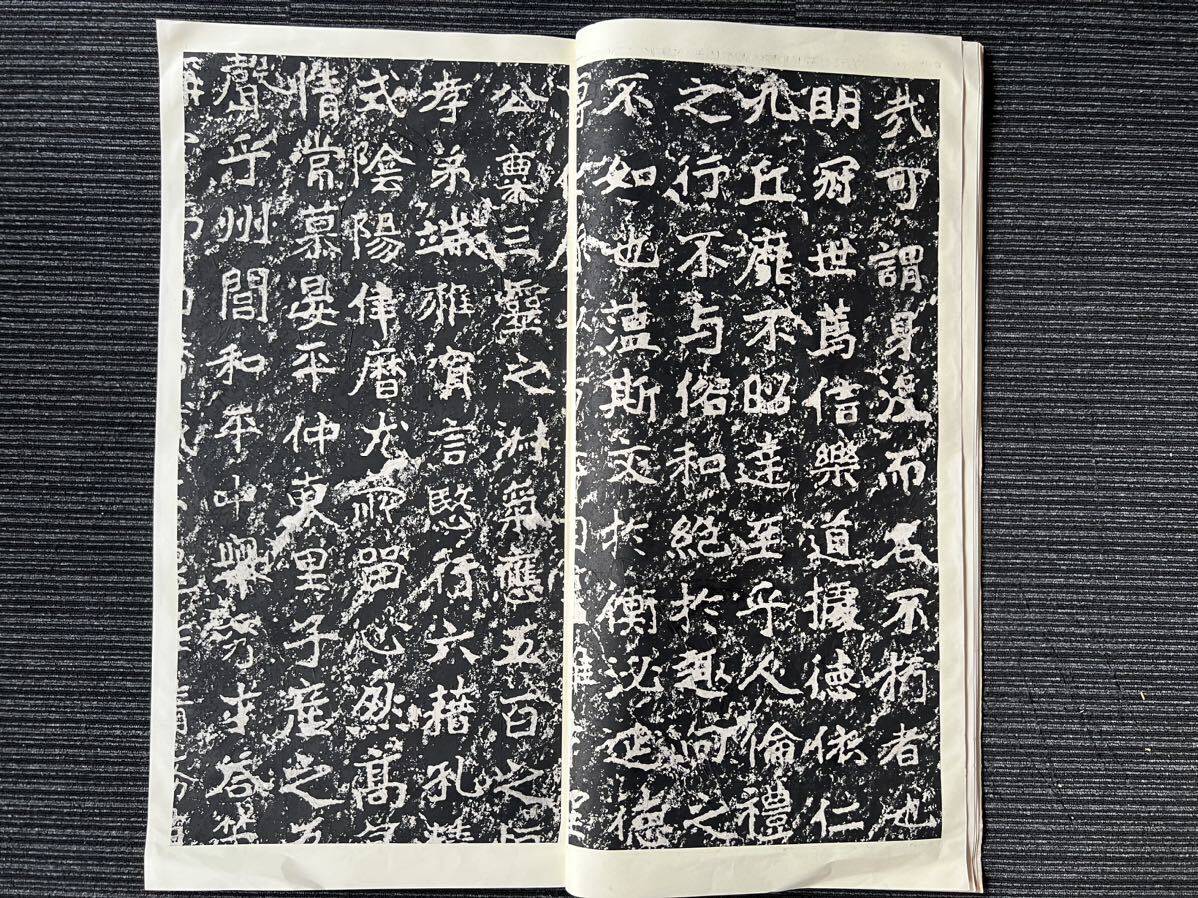 哉可謂身沒而名不朽者也
朗冠世篤信樂道據德依仁
九丘靡不昭達至乎人倫禮
之行不与俗和絕於趣向之
不如也蘊斯文於衡泌延德
公稟三靈之淑氣應五百之
孝弟端雅實言愍行六藉孔精
式陰陽律曆尤所留心然高
情常慕晏平仲東里子產之為
聲乎州閭和平中舉秀才答策